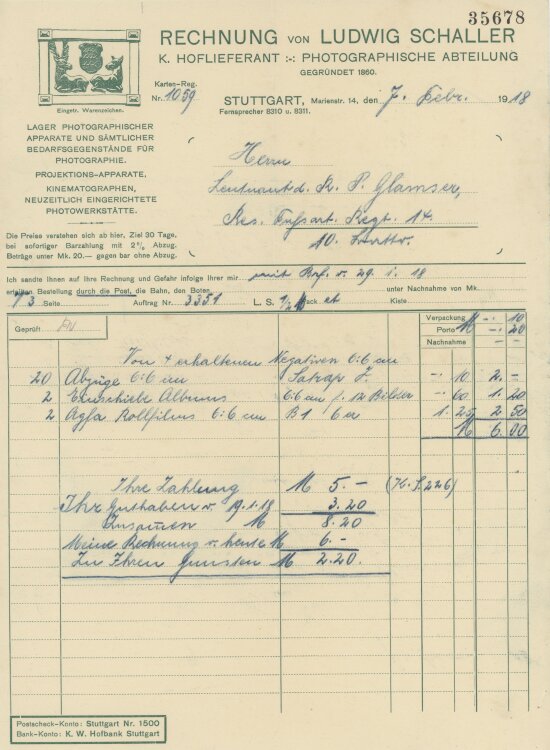 35678
RECHNUNG VON LUDWIG SCHALLER
K. HOFLIEFERANT :-: PHOTOGRAPHISCHE ABTEILUNG
GEGRÜNDET 1860.
Eingetr. Warenzeichen.
Karten-Reg.
Nr. 1059
STUTTGART, Marienstr. 14, den 7. Febr. 1918
Fernsprecher 8310 u. 8311.
LAGER PHOTOGRAPHISCHER
APPARATE UND SÄMTLICHER
BEDARFSGEGENSTÄNDE FÜR
PHOTOGRAPHIE.
PROJEKTIONS-APPARATE,
KINEMATOGRAPHEN,
NEUZEITLICH EINGERICHTETE
PHOTOWERKSTÄTTE.
Herrn
Leutnant d. R. P. Glamser,
Res. Fußart. Regt. 14
10. Battr.
Die Preise verstehen sich ab hier, Ziel 30 Tage,
bei sofortiger Barzahlung mit 2% Abzug.
Beträge unter Mk. 20.— gegen bar ohne Abzug.
Ich sandte Ihnen auf Ihre Rechnung und Gefahr infolge Ihrer mir mit Brf. v. 29.1.18
erteilten Bestellung durch die Post, die Bahn, den Boten unter Nachnahme von Mk.
T 3 Seite Auftrag Nr. 3351 L. S. 1 Pack et Kiste
Geprüft
Verpackung M -. 10
Porto M -. 20
Nachnahme -.
Von 4 erhaltenen Negativen 6:6 cm
20 Abzüge 6:6 cm Satrap -. 10 2. -
2 Einschieb Albums 6:6 cm f. 12 Bilder -. 60 1. 20
2 Agfa Rollfilms 6:6 cm B1 6er 1. 25 2. 50
M 6. 00
Ihre Zahlung M 5. - (K. S. 226)
Ihr Guthaben v. 19.1.18 3.20
Zusammen M 8.20
Meine Rechnung v. heute M 6. -
Zu Ihren Gunsten M 2.20.
Postscheck-Konto: Stuttgart Nr. 1500
Bank-Konto: K. W. Hofbank Stuttgart